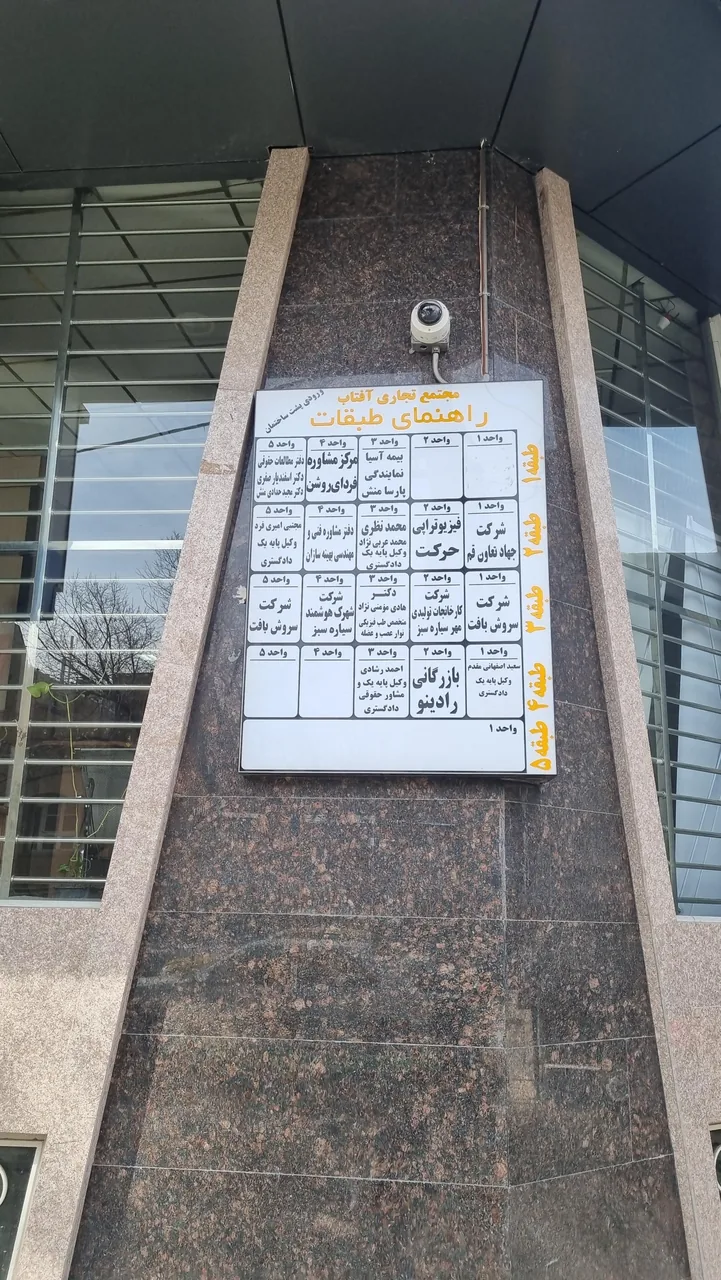 مجتمع تجاری آفتاب
راهنمای طبقات
ورودی پشت ساختمان
طبقه ۱
واحد ۱
واحد ۲
واحد ۳
بیمه آسیا
نمایندگی
پارسا منش
واحد ۴
مرکز مشاوره
فردای روشن
واحد ۵
دفتر مطالعات حقوقی
دکتر اسفندیار صفری
دکتر مجید حدادی منش
طبقه ۲
واحد ۱
شرکت
جهاد تعاون قم
واحد ۲
فیزیوتراپی
حرکت
واحد ۳
محمد نظری
محمد عربی نژاد
وکیل پایه یک
دادگستری
واحد ۴
دفتر مشاوره فنی و
مهندسی بهینه سازان
واحد ۵
مجتبی امیری فرد
وکیل پایه یک
دادگستری
طبقه ۳
واحد ۱
شرکت
سروش بافت
واحد ۲
شرکت
کارخانجات تولیدی
مهر سیاره سبز
واحد ۳
دکتر
هادی مؤمنی نژاد
متخصص طب فیزیکی
نوار عصب و عضله
واحد ۴
شرکت
شهرک هوشمند
سیاره سبز
واحد ۵
شرکت
سروش بافت
طبقه ۴
واحد ۱
سعید اصفهانی مقدم
وکیل پایه یک
دادگستری
واحد ۲
بازرگانی
رادینو
واحد ۳
احمد رشادی
وکیل پایه یک و
مشاور حقوقی
دادگستری
واحد ۴
واحد ۵
طبقه ۵
واحد ۱